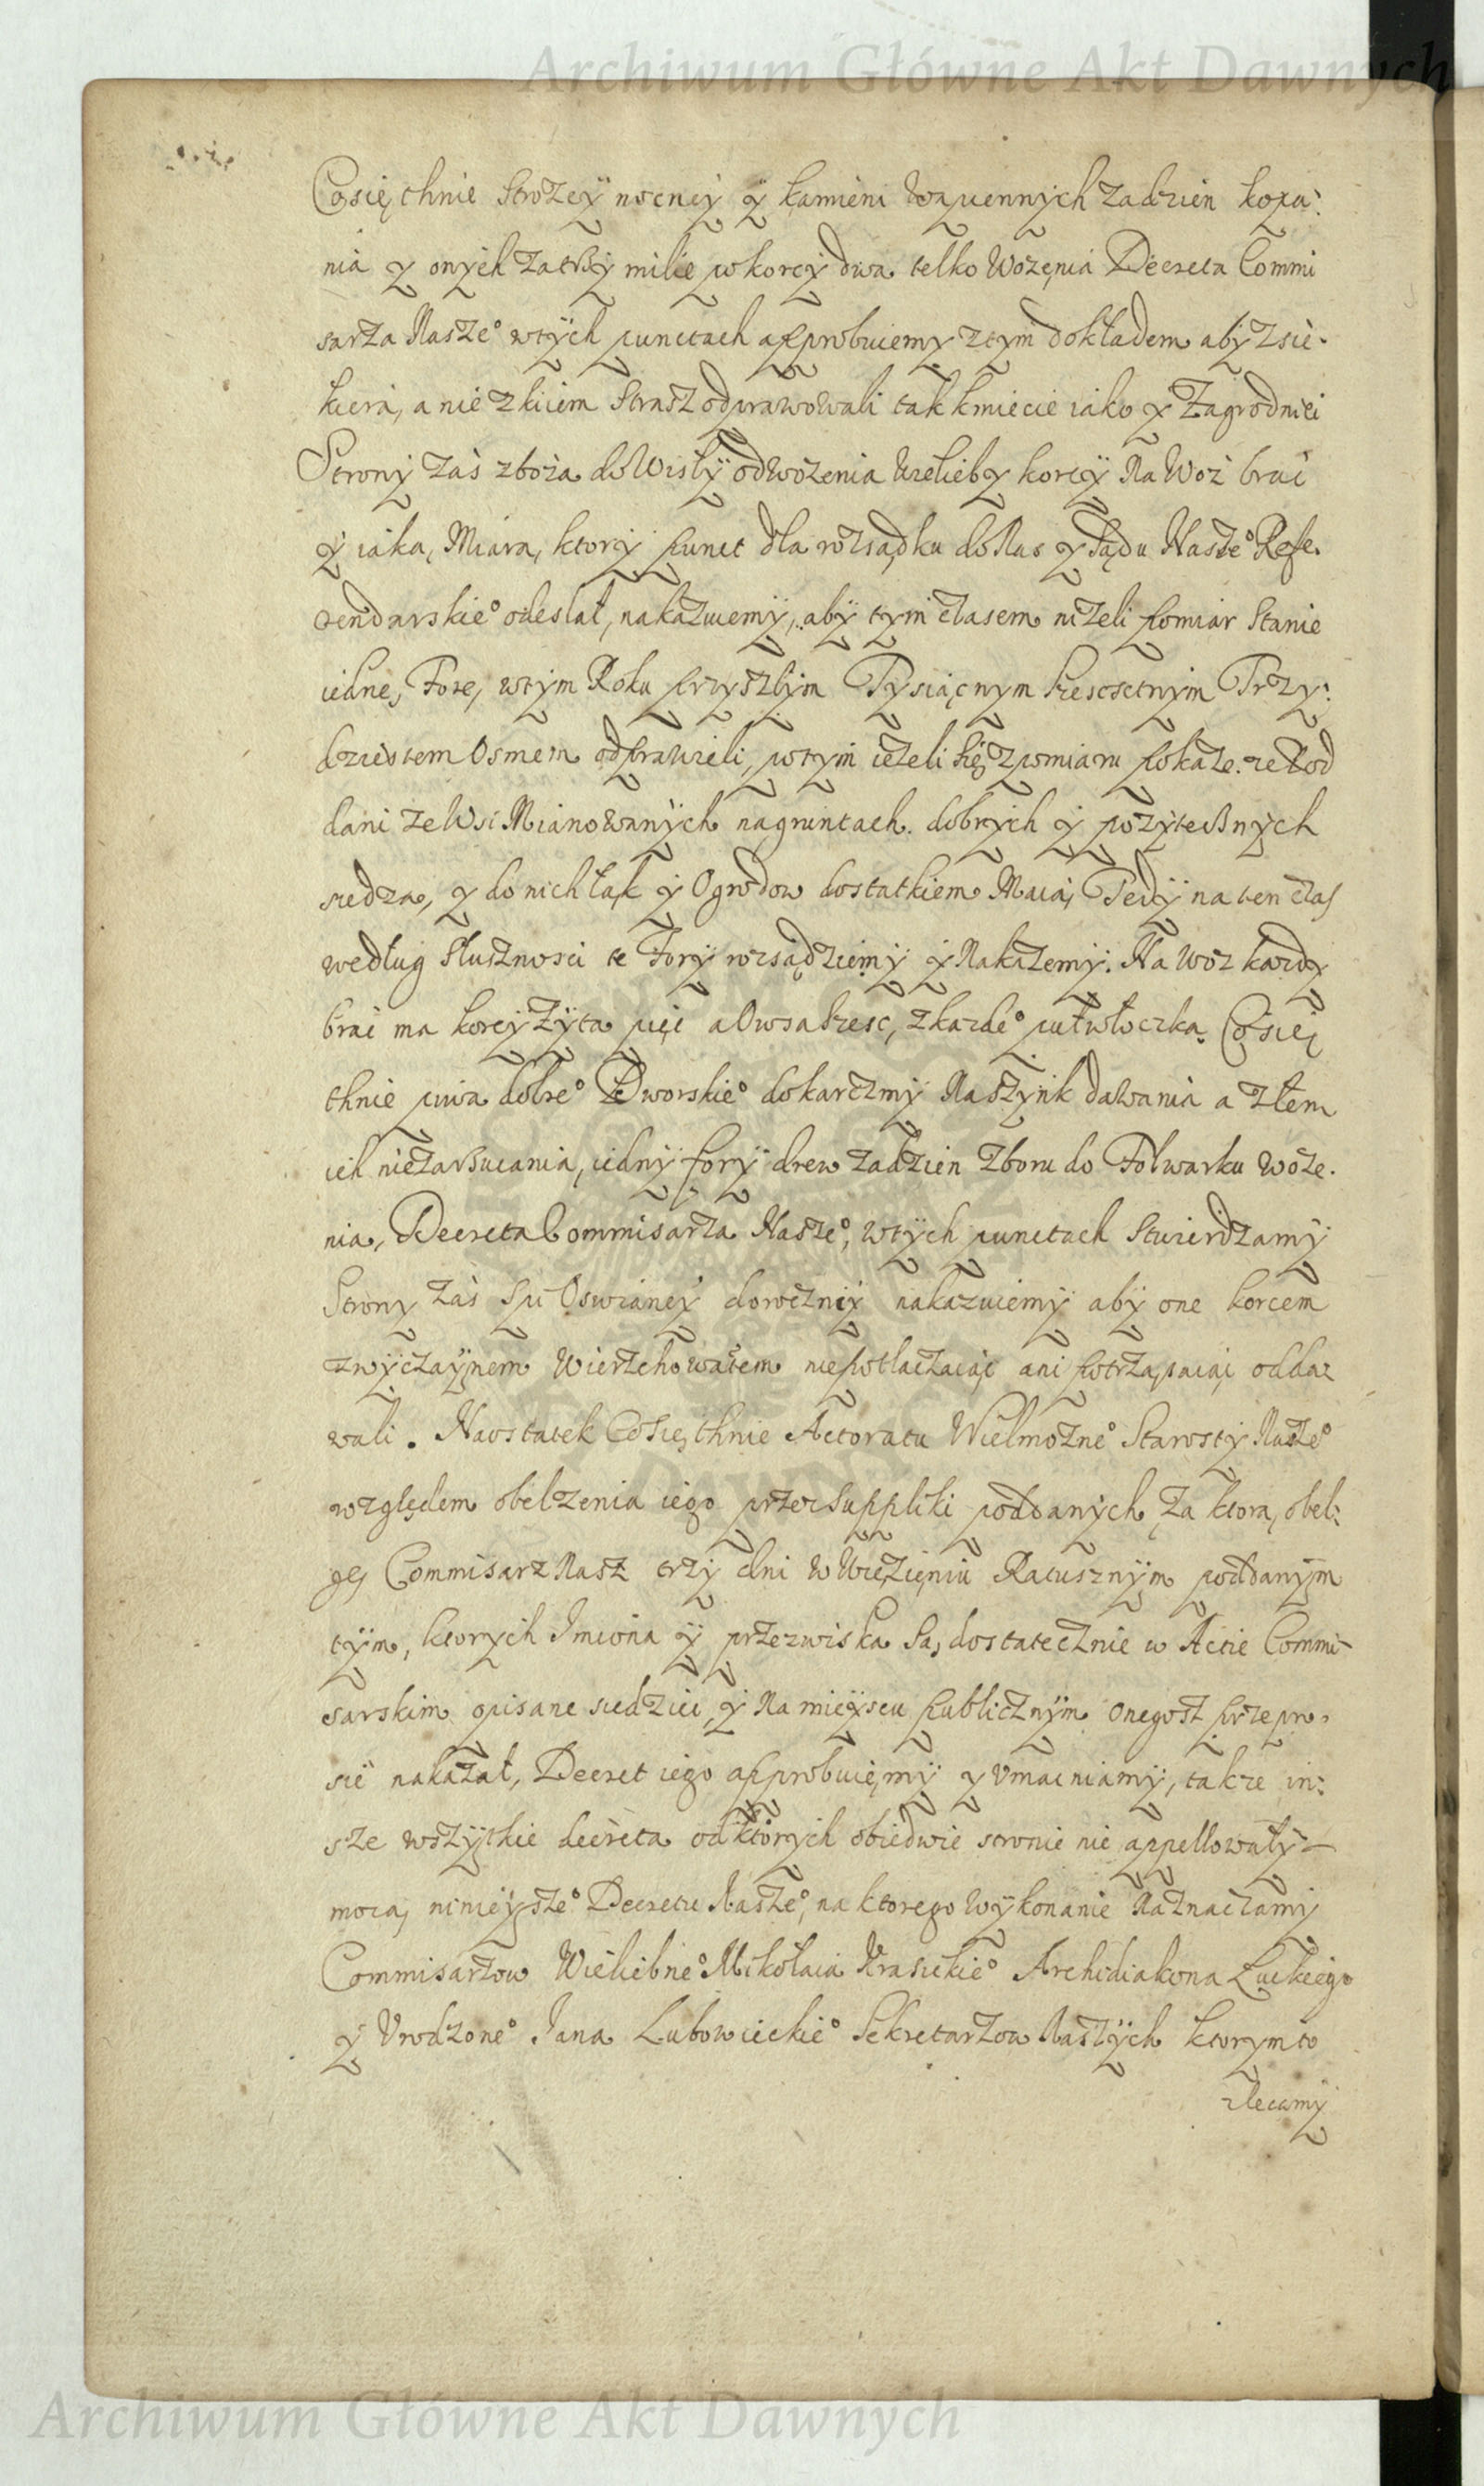 Archiwum Główne Akt Dawnych
Co się thnie Strożey nocney y kamieni Wapiennych za dzien kopa:
nia y onych za trzy mile po korcy dwa telko Wożęnia Decreta Commi
sarza Nasze° w tych punctach approbuiemy z tym dokładem aby z sie-
kierą, a nie z kiiem Straż odprawowali tak kmiecie iako y Zagrodnici
Strony zaś zboża do Wisły odwożenia wieleby korcy Na Woz brać
y iaką Miarą, ktory punct dla rozsądku do Nas y Sądu Nasze° Refe-
rendarskie° odesłał, nakazuiemy, aby tym czasem niżeli pomiar Stanie
iednę Forę, w tym Roku przyszłym Tysiącnym Szescsetnym Trzy:
dziestem Osmem odprawieli, potym ieżeli się z pomiaru pokaże że Pod
dani ze Wsi Mianowanych na gruntach dobrych y pożytecznych
siedzą, y do nich łąk y Ogrodow dostatkiem Maią, Tedy na ten czas
według słusznosci te Fory rozsądziemy y Nakażemy. Na Woz każdy
brać ma korcy Żyta pięć a Owsa szesc, z każde° pułwłoczka. Co się
thnie piwa dobre° Dworskie° do karczmy Na szynk dawania a złem
ich niezarzucania, iedny fory drew za dzien z boru do Folwarku woże-
nia, Decreta Commisarza Nasze°, w tych punctach Stwierdzamy
Strony zaś Spi Oswianey dorocżney nakazuiemy aby one korcem
zwyczaynem Wierzchowatem nie potłaczaiąc ani potrząsaiąc odda:
wali. Naostatek Co się thnie Actoratu Wielmożne° Starosty Nasze°
względem obelżenia iego przez suppliki poddanych, za ktorą obel:
gę Commisarz Nasz trzy dni w Więzięniu Ratusznym poddanym
tym, ktorych Imiona y przezwiska Są dostatecznie w Actie Commi-
sarskim opisane siedzieć, y Na mieyscu publicznym onegosz przepro-
sić nakazał, Decret iego approbuięmy y Umacniamy, także in:
sze wszytkie decreta od ktorych obiedwie stronie nie appellowały
mocą ninieysze° Decretu Nasze°, na ktorego wykonanie Naznaczamy
Commisarzow Wielebne° Mikołaia Krasickie° Archidiakona Łuckiego
y Urodzone° Jana Lubowieckie° Sekretarzow Naszych ktorym to
zlecamy
Archiwum Główne Akt Dawnych